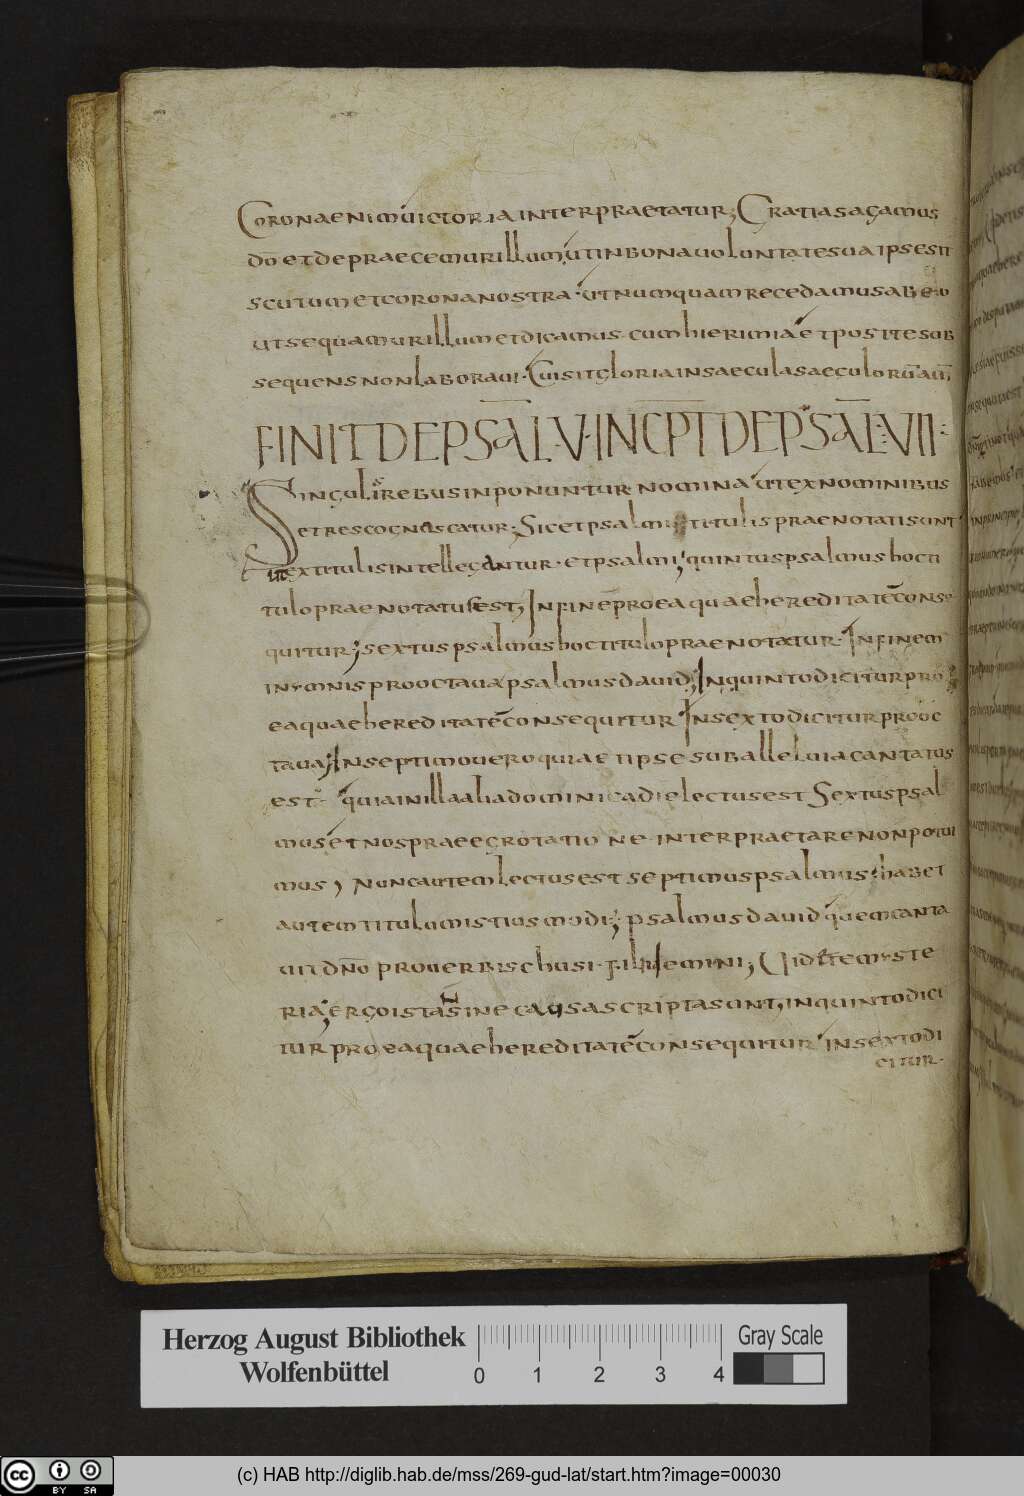 Coronaenimuictoriainterpraetatur; Gratiasagamus
do etdepraecemurillum, utinbonauoluntatesuaipsesit
scutumetcoronanostra · utnumquamrecedamusabeo
utsequamurillumetdicamus · cumhierimia etpostesub
sequensnonlaboraui · Cuiestgloriainsaeculasaeculorū
FINIT DE PSAL V · INCPT DE PSAL · VII
Singulisrebusinponunturnominautexnominibus
etrescognoscatur; Sicetpsalmi titulispraenotatisunt
utextitulisintellegantur · etpsalmi; quintuspsalmushocti
tulopraenotatusest, Infineproeaquaehereditatēconse
quitur; sextuspsalmushoctitulopraenotatur · Infinem
inymnisprooctauapsalmusdauid; Inquintodiciturpro
eaquaehereditatēconsequitur Insextodiciturprooc
taua; Inseptimoueroquiaetipsesuballeluiacantatus
est · quiainillaaliadominicadielectusest Sextuspsal
musetnospraeegrotatione interpraetarenonpotui
mus, Nuncautemlectusestseptimuspsalmus · habet
autemtitulumistiusmodi; psalmusdauidquemcanta
uitdno prouerbischusi · filiiiemini; Uidetemyste
ria; ergoistanonsinecausascriptasunt, inquintodici
tur proeaquaehereditatēconsequitur insextodi
citur ·
Herzog August Bibliothek
Wolfenbüttel
0 1 2 3 4
Gray Scale
cc BY SA
(c) HAB http://diglib.hab.de/mss/269-gud-lat/start.htm?image=00030